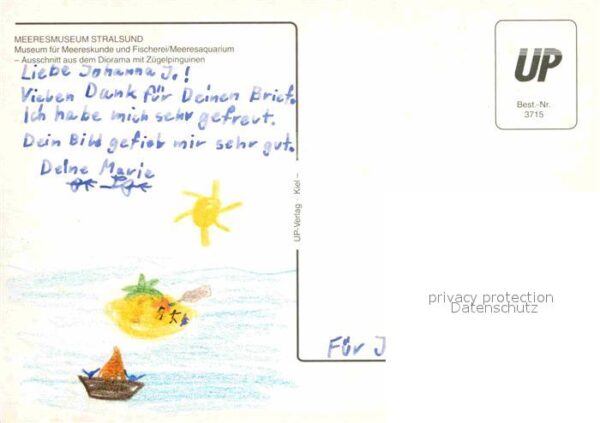 MEERESMUSEUM STRALSUND
Museum für Meereskunde und Fischerei/Meeresaquarium
– Ausschnitt aus dem Diorama mit Zügelpinguinen
Liebe Johanna J.!
Vielen Dank für Deinen Brief.
Ich habe mich sehr gefreut.
Dein Bild gefiel mir sehr gut.
Deine Marie
UP
Best.-Nr.
3715
UP-Verlag · Kiel –
privacy protection
Datenschutz
Für J